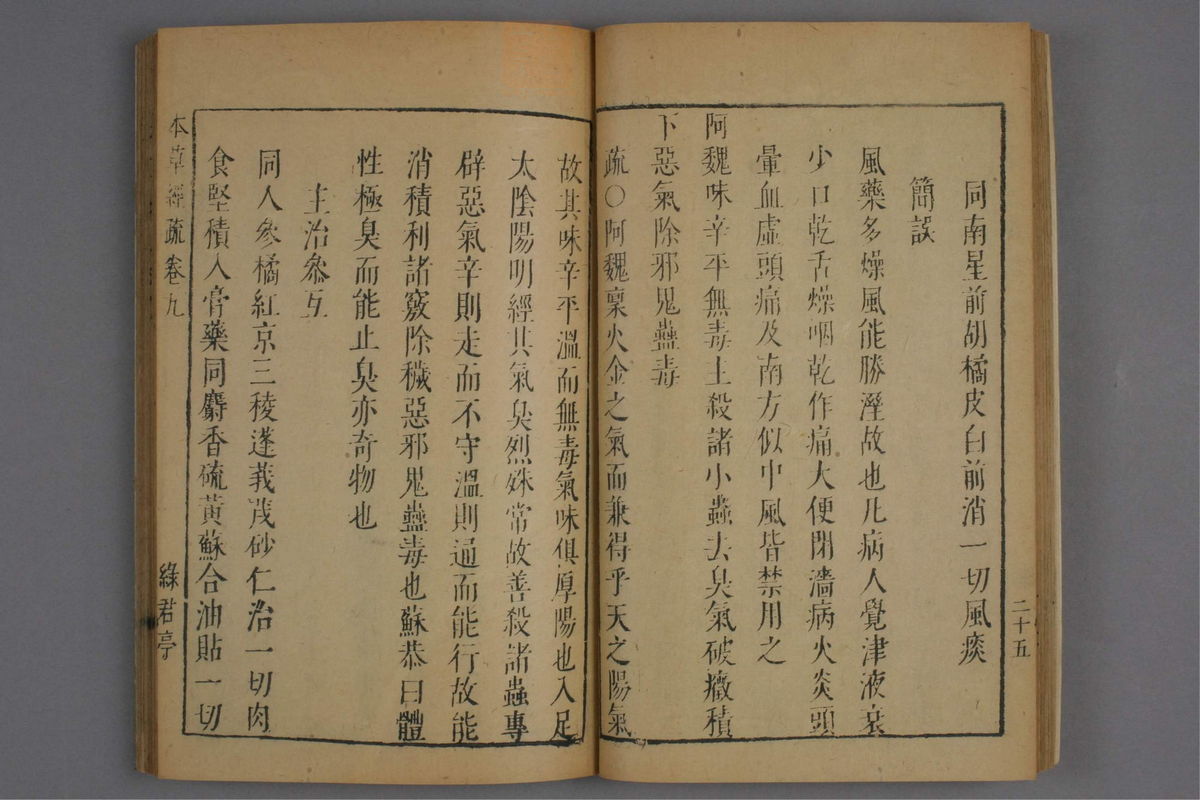 二十五
同南星前胡橘皮白前消一切風痰
簡誤
風藥多燥風能勝溼故也凡病人覺津液衰
少口乾舌燥咽乾作痛大便閉濇病火炎頭
暈血虛頭痛及南方似中風皆禁用之
阿魏味辛平無毒主殺諸小蟲去臭氣破癥積
下惡氣除邪鬼蠱毒
疏○阿魏稟火金之氣而兼得乎天之陽氣
故其味辛平溫而無毒氣味俱厚陽也入足
太陰陽明經其氣臭烈殊常故善殺諸蟲專
辟惡氣辛則走而不守溫則通而能行故能
消積利諸竅除穢惡邪鬼蠱毒也蘇恭曰體
性極臭而能止臭亦奇物也
主治參互
同人參橘紅京三稜蓬莪茂砂仁治一切肉
食堅積入膏藥同麝香硫黃蘇合油貼一切
本草經疏卷九
綠君亭